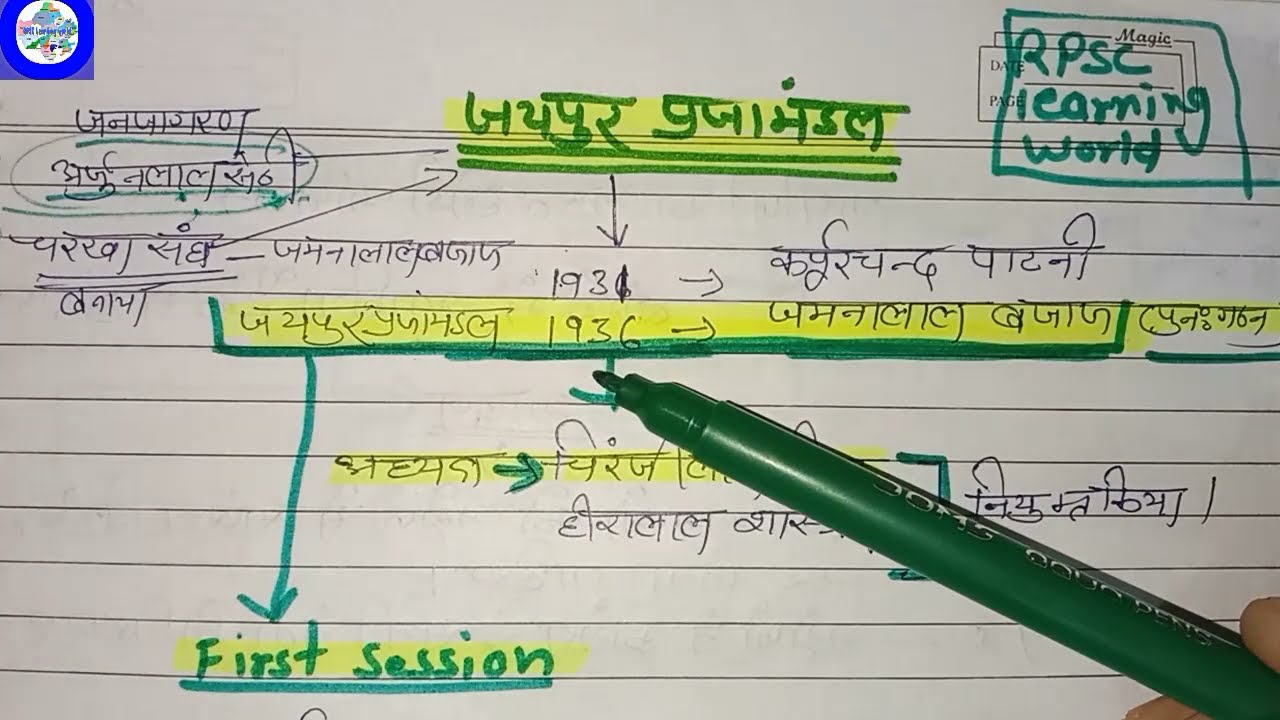 Magic
DATE
PAGE
RPSC
learning
world
जयपुर प्रजामंडल
जनजागरण
अर्जुनलाल सेठी
चरखा संघ – जमनालाल बजाज
बनाया
1931 → कर्पूरचन्द पाटनी
जयपुर प्रजामंडल 1936 → जमनालाल बजाज (पुनःगठन
अध्यक्ष →
हीरालाल नियुक्त किया।
First session